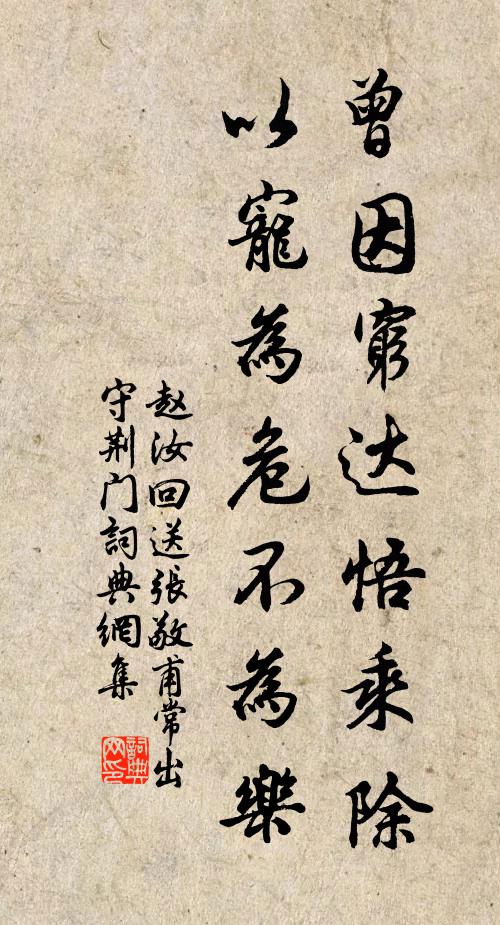 曾因窮达悟乘除
以寵為危不為樂
赵汝回送張敬甫常出
守荆门詞典網集
詞典
网印